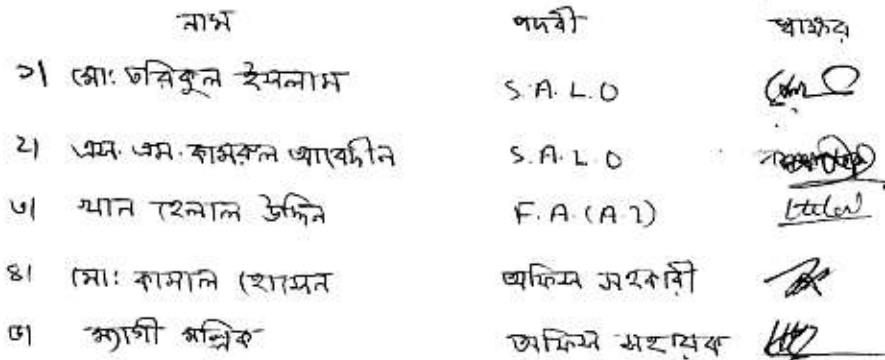 নাম পদবী স্বাক্ষর
১। মোঃ তরিকুল ইসলাম S.A.L.O
২। এস. এম. কামরুল আবেদীন S.A.L.O
৩। খান হেলাল উদ্দিন F.A.(A.I)
৪। মোঃ কামাল হোসেন অফিস সহকারী
৫। ম্যাগী মল্লিক অফিস সহায়ক